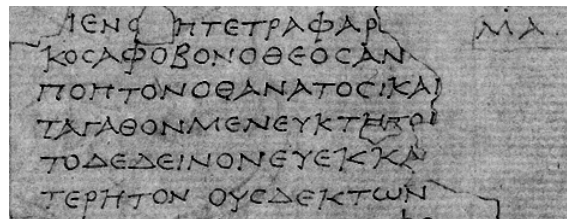 ΙΕΝΟ ΠΤΕΤΡΑΦΑΡ ΜΑ
ΚΟϹΑΦΟΒΟΝΟΘΕΟϹΑΝ
ΠΟΗΤΟΝΟΘΑΝΑΤΟϹΙΚΑΙ
ΤΑΓΑΘΟΝΜΕΝΕΥΚΤΗΤΟΙ
ΤΟΔΕΔΕΙΝΟΝΕΥΕΚΚΑ
ΤΕΡΗΤΟΝ ΟΥΕΔΕΚΤΩΝ